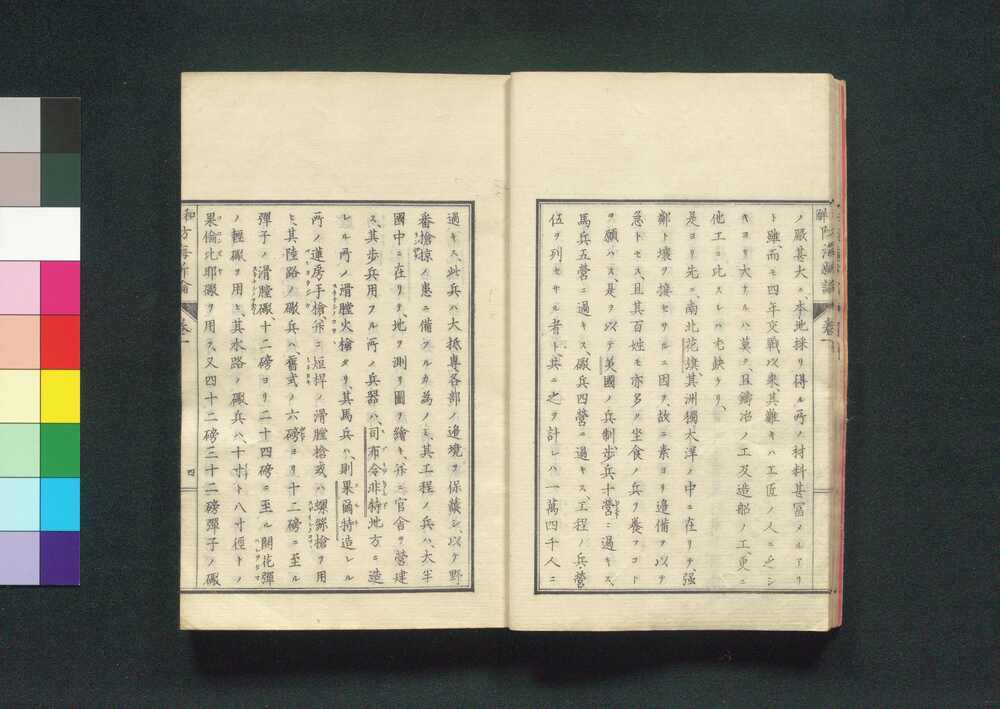 ノ嚴甚大ニ、本地採リ得ル所ノ材料甚富メルアリ
ト雖、而モ四年交戰以來、其難キハ工匠ノ人ニ乏シ
キヨリ大ナルハ莫ク、且鑄冶ノ工及造船ノ工、更ニ
他工ニ比スレハ尤缺ケリ、
是ヨリ先ニ、南北花旗、其洲獨大洋ノ中ニ在リテ、强
鄰ト壤ヲ接セサルニ因ヲ、故ニ素ヨリ邊備ヲ以テ
急トセス、且其百姓モ亦多ク坐食ノ兵ヲ養フコト
ヲ願ハス、是ヲ以テ英國ノ兵制、步兵十營ニ過キス、
馬兵五營ニ過キス、礟兵四營ニ過キス、工程ノ兵、營
伍ヲ列セサル者ト、共ニ之ヲ計レハ一萬四千人ニ
過キス、此兵ハ大抵專各部ノ邊境ヲ保護シ、以テ野
番搶掠ノ患ニ備フルカ爲ノミ、其工程ノ兵ハ、大半
國中ニ在リテ、地ヲ測リ圖ヲ繪キ、幷ニ官舍ヲ營建
ス、其步兵用フル所ノ兵器ハ、司布令非特地方ニ造
レル所ノ滑膛火槍タリ、其馬兵ハ、則果爾特造レル
所ノ蓮房手槍、幷ニ短桿ノ滑膛槍或ハ螺絲槍ヲ用
ヒ、其陸路ノ礟兵ハ、舊式ノ六磅ヨリ十二磅ニ至ル
彈子ノ滑膛礟、十二磅ヨリ二十四磅ニ至ル開花彈
ノ輕礟ヲ用ヒ、其水路ノ礟兵ハ、十寸ト八寸徑トノ
果倫比耶礟ヲ用ヲ、又四十二磅三十二磅彈子ノ礟
卷一
四